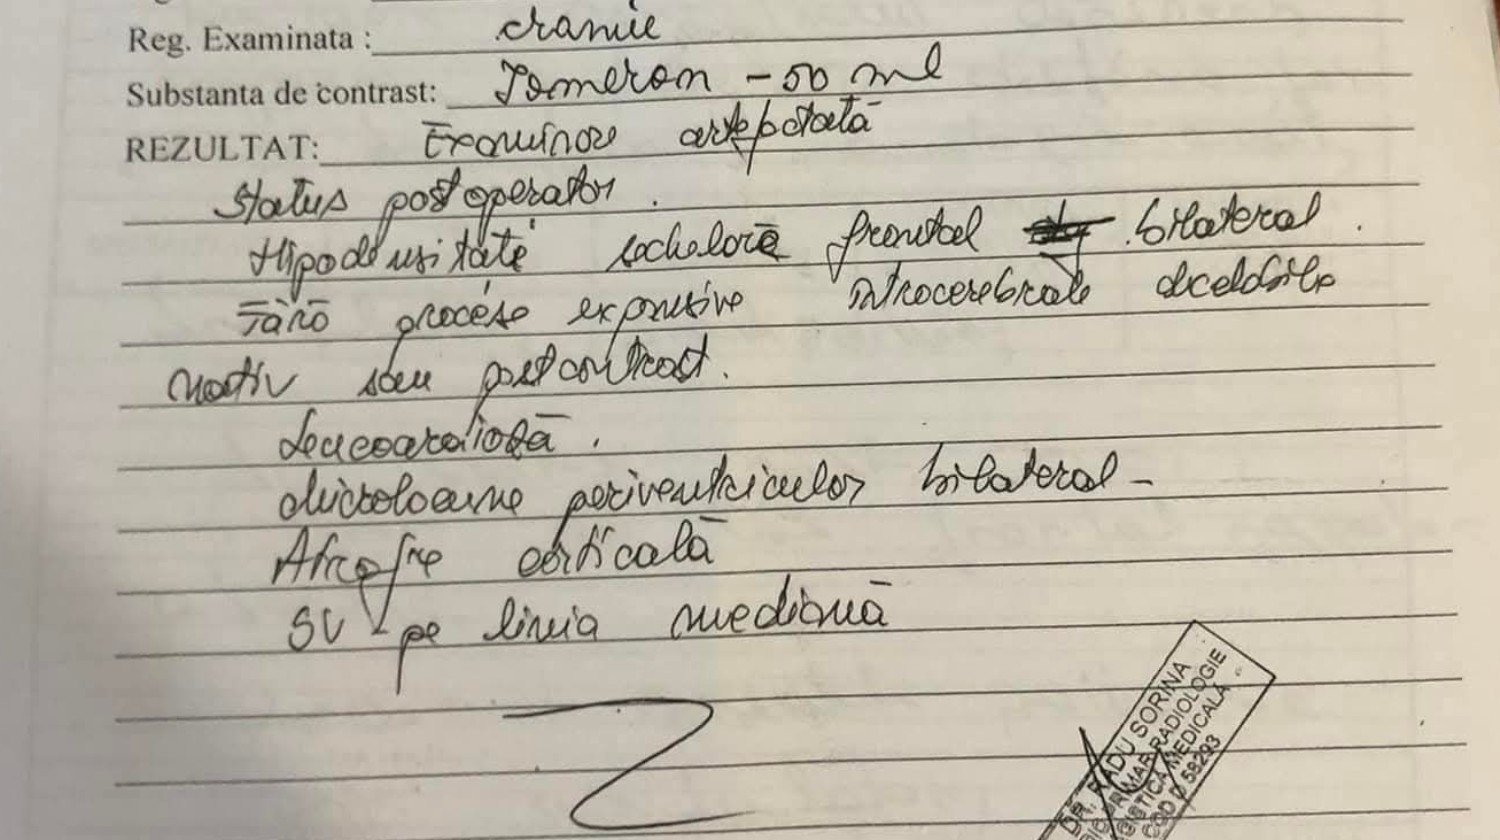 Reg. Examinata : craniu
Substanta de contrast: Iomeron - 50 ml
REZULTAT: Examinare artefactată
Status postoperator .
Hipodensitate sechelară frontal bilateral .
Fără procese expansive intracerebrale decelabile
nativ sau postcontrast.
Leucoaraioză .
Microlacune periventricular bilateral -
Atrofie corticală
SV pe linia mediană
DR. RADU SORINA
RADIOLOGIE
MEDICALĂ
COD D 58293